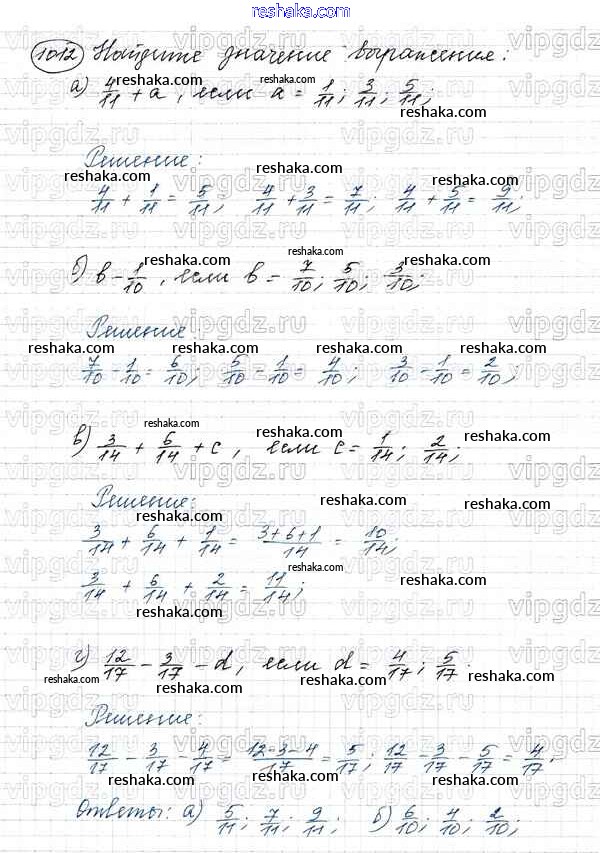 www.reshaka.com
1012 Найдите значение выражения:
а) 4/11 + а, если а = 1/11; 3/11; 5/11;
Решение:
4/11 + 1/11 = 5/11; 4/11 + 3/11 = 7/11; 4/11 + 5/11 = 9/11;
б) в − 1/10, если в = 7/10; 5/10; 3/10;
Решение:
7/10 − 1/10 = 6/10; 5/10 − 1/10 = 4/10; 3/10 − 1/10 = 2/10;
в) 3/14 + 6/14 + с, если с = 1/14; 2/14;
Решение:
3/14 + 6/14 + 1/14 = 3+6+1/14 = 10/14;
3/14 + 6/14 + 2/14 = 11/14;
г) 12/17 − 3/17 − d, если d = 4/17; 5/17.
Решение:
12/17 − 3/17 − 4/17 = 12−3−4/17 = 5/17; 12/17 − 3/17 − 5/17 = 4/17.
Ответы: а) 5/11; 7/11; 9/11; б) 6/10; 4/10; 2/10;
vipgdz.ru
reshaka.com
www.reshaka.com